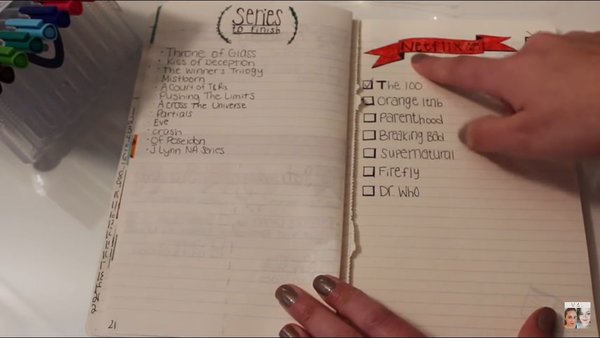 Series
to finish
· Throne of Glass
· Kiss of Deception
· The Winner's Trilogy
Mistborn
· A Court of T&Rs
Pushing The Limits
Across The Universe
· Partials
Eve
· crush
· Of Poseidon
· J. Lynn NA Series
21
Netflix
The 100
Orange Itnb
Parenthood
Breaking Bad
Supernatural
Firefly
Dr. Who